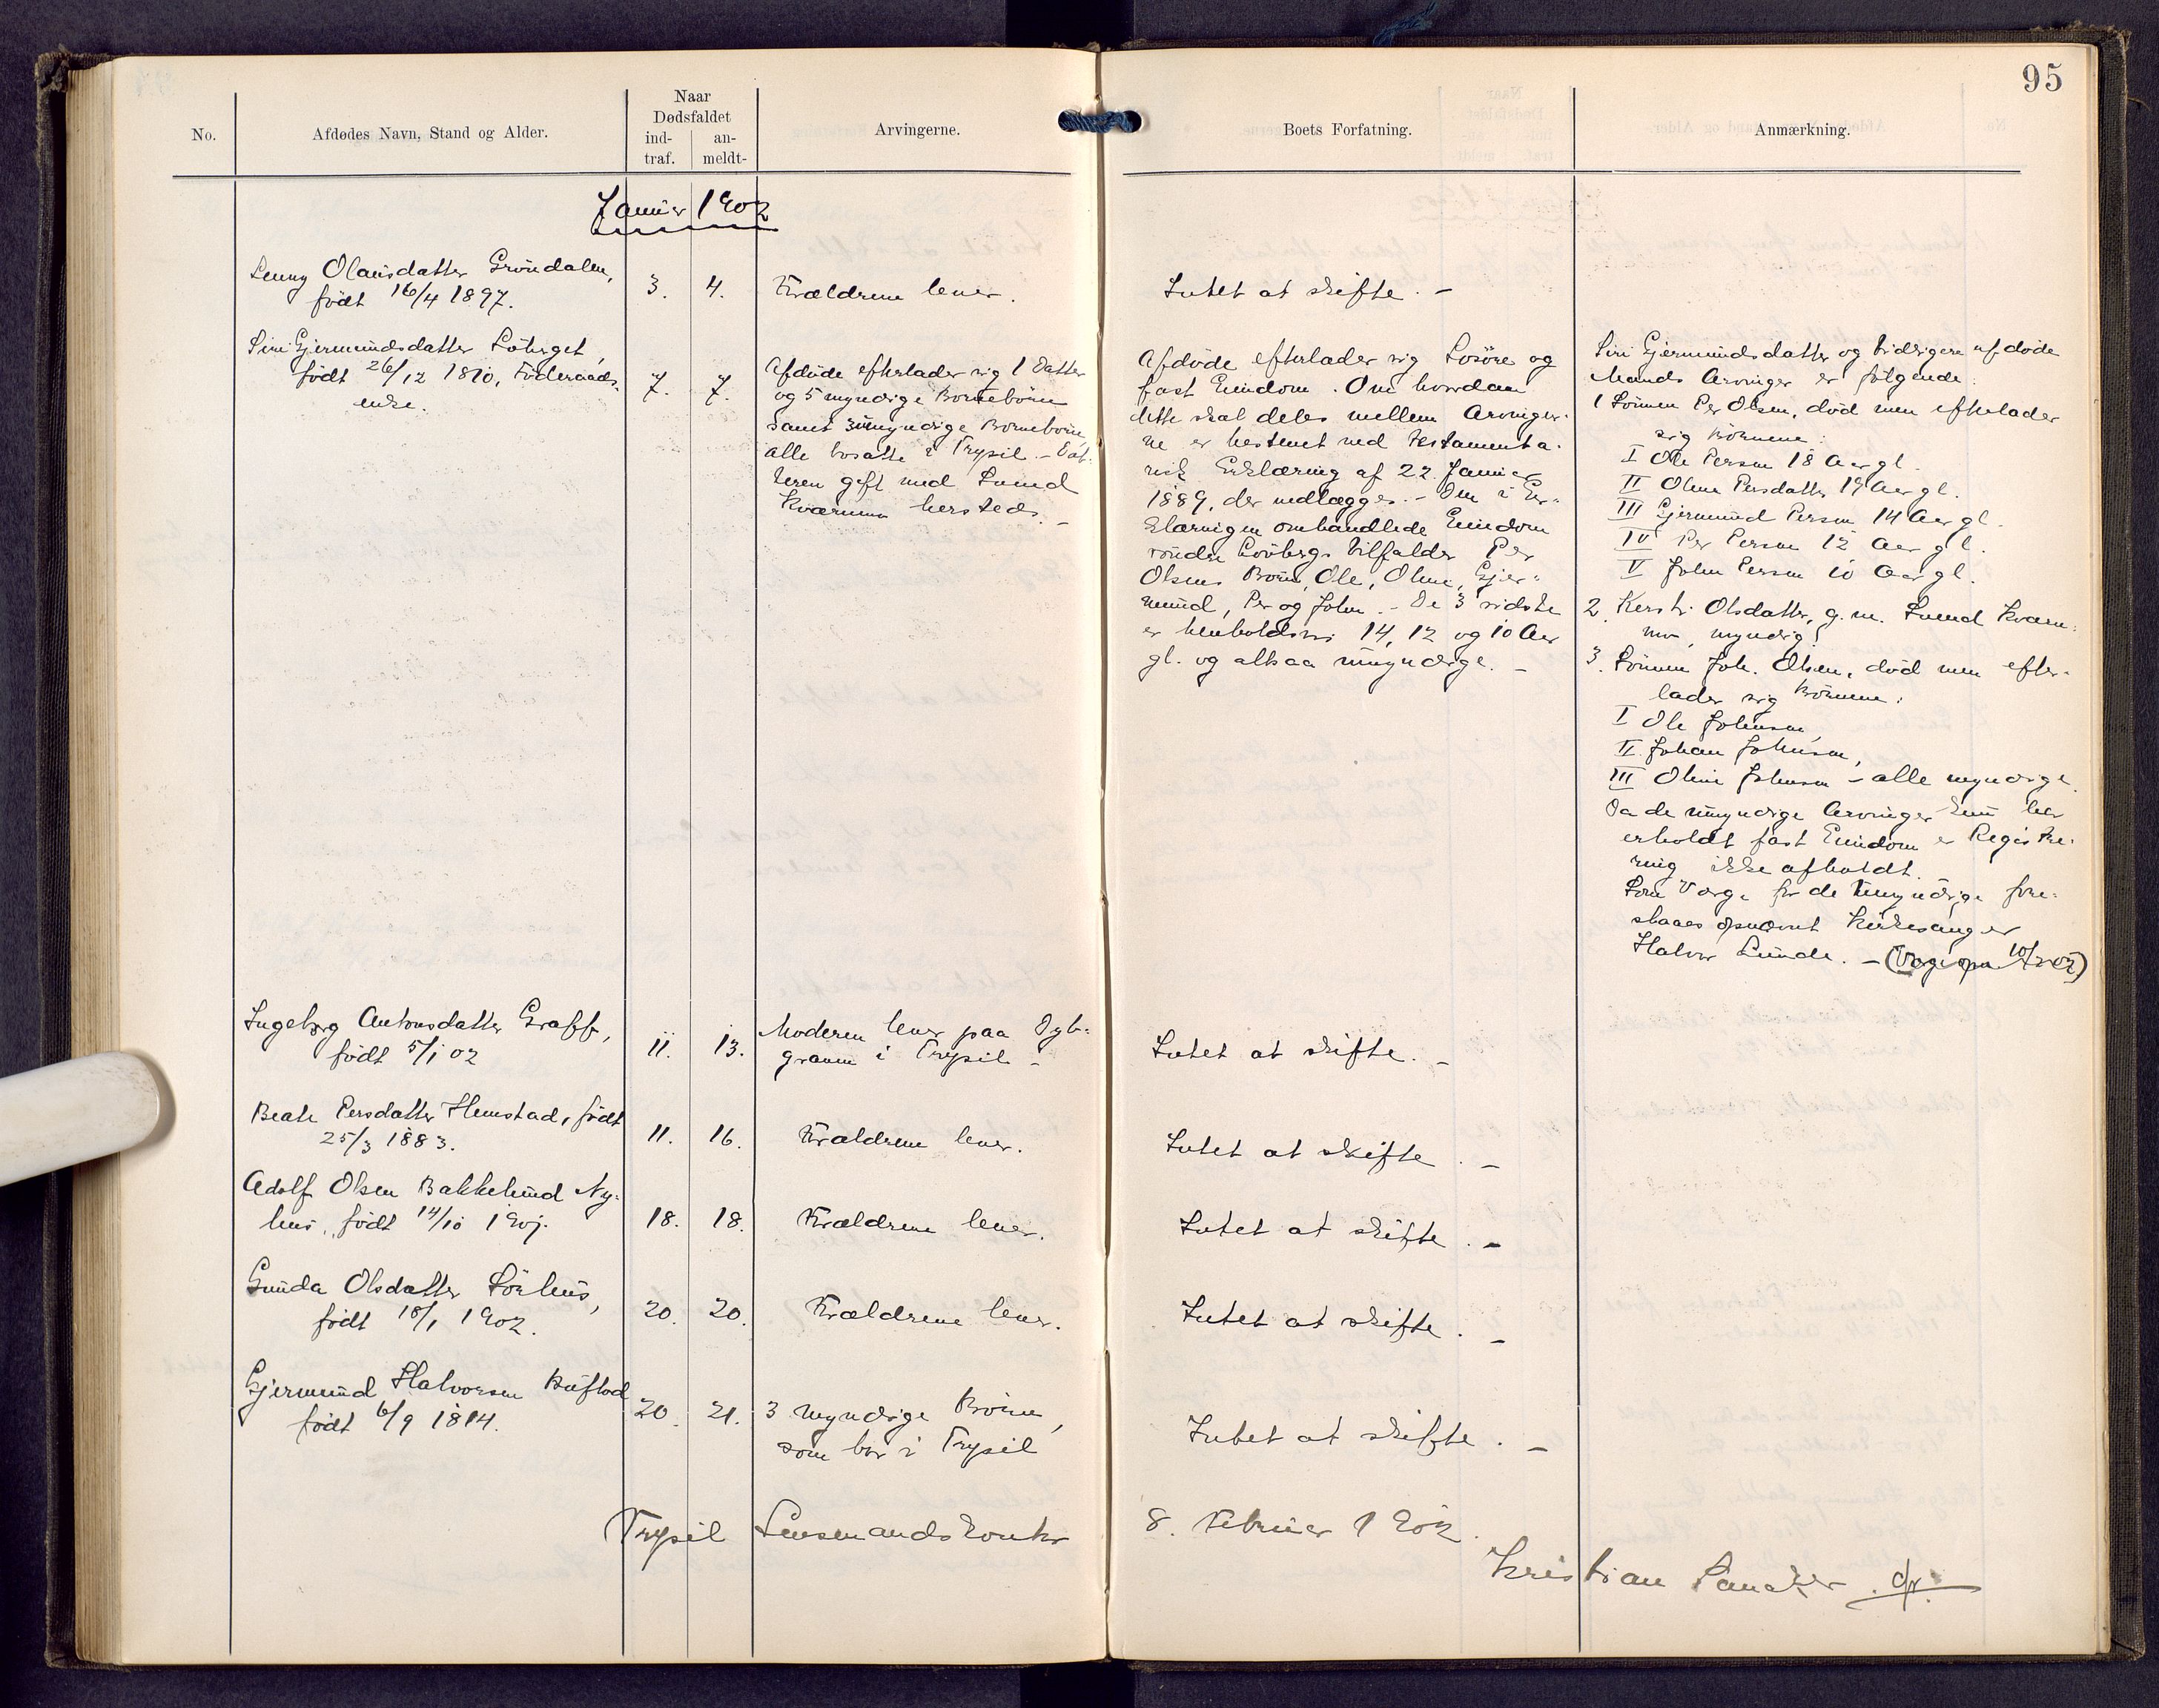 95
No.
Afdødes Navn, Stand og Alder.
Naar
Dødsfaldet
ind-
traf.
an-
meldt-
Arvingerne.
Boets Forfatning.
Anmærkning.
Januar 1902
Jenny Olausdatter Gröndalen,
födt 16/4 1897.
3.
4.
Forældrene lever.
Intet at skifte. -
Siri Gjermundsdatter Löberget,
födt 26/12 1810, Föderaads-
enke.
7.
7.
Afdöde efterlader sig 1 Datter
og 5 myndige Börnebörn
samt 3 umyndige Börnebörn,
alle bosatte i Trysil. - Dat-
teren gift med Svend
Kværnmo hersteds. -
Afdöde efterlader sig Lösöre og
fast Eiendom. Om hvordan
dette skal deles mellem Arvinger-
ne er bestemt ved testamenta-
risk Erklæring af 22. Januar
1889, der vedlægges. - Den i Er-
klæringen omhandlede Eiendom
söndre Lövberg tilfalder Per
Olsens Börn, Ole, Oline, Gjer-
mund, Per og John. - De 3 sidste
er henholdsvis 14, 12 og 10 Aar
gl. og altsaa umyndige. -
Siri Gjermundsdatter og tidligere afdöde
Mands Arvinger er fölgende:
1 Sönnen Per Olsen, död men efterlader
sig Börnene:
I Ole Persen 18 Aar gl.
II Oline Persdatter 19 Aar gl.
III Gjermund Persen 14 Aar gl.
IV Per Persen 12 Aar gl.
V John Persen 10 Aar gl.
2. Kersti Olsdatter, g. m. Svend Kværn-
mo, myndig.
3. Sönnen Joh. Olsen, död men efter-
lader sig Börnene:
I Ole Johnsen,
II Johan Johnsen,
III Oline Johnsen - alle myndige.
Da de umyndige Arvinger kun har
erholdt fast Eiendom er Registre-
ring ikke afholdt.
Som Værge for de Umyndige fore-
slaaes opnævnt Kirkesanger
Halvor Lunde. - (Værge opn 10/2 02)
Ingeborg Antonsdatter Graff,
födt 5/1 02
11.
13.
Moderen lever paa Dyb-
graven i Trysil -
Intet at skifte. -
Beate Persdatter Hemstad, födt
25/3 1883.
11.
16.
Forældrene lever.
Intet at skifte. -
Adolf Olsen Bakkelund Ny-
hus, födt 14/10 1901.
18.
18.
Forældrene lever.
Intet at skifte. -
Gunda Olsdatter Sörhus,
födt 18/1 1902.
20.
20.
Forældrene lever.
Intet at skifte. -
Gjermund Halvorsen
födt 6/9 1814.
20.
21.
3 myndige Börn,
som bor i Trysil
Intet at skifte. -
Trysil Lensmandskontor 8. Februar 1902.
Kristian